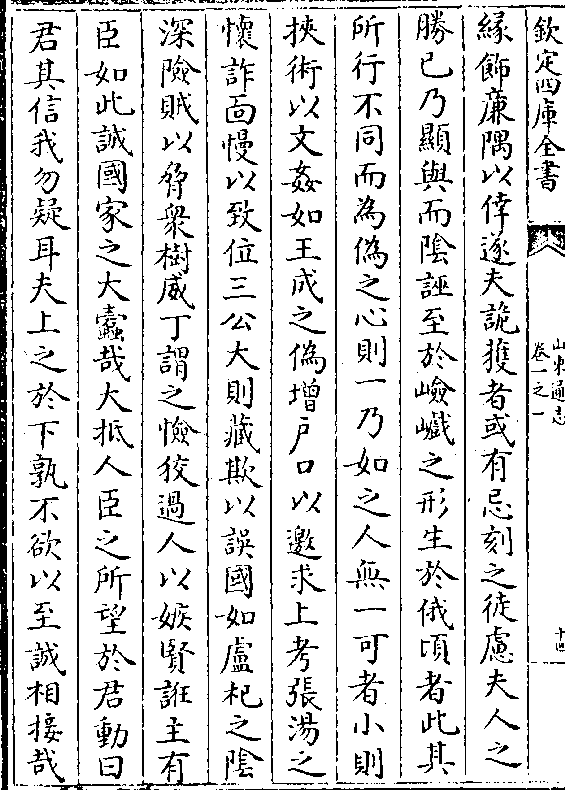 欽定四庫全書
山東通志
卷一之一
十四
緣飾廉隅以倖逐夫詭獲者或有忌刻之徒慮夫人之
勝已乃顯與而陰誣至於嶮巇之形生於俄頃者此其
所行不同而為偽之心則一乃如之人無一可者小則
挾術以文姦如王成之偽增戶口以邀求上考張湯之
懷詐面慢以致位三公大則藏欺以誤國如盧杞之陰
深險賊以脅衆樹威丁謂之憸狡過人以嫉賢誑主有
臣如此誠國家之大蠧哉大抵人臣之所望於君動曰
君其信我勿疑耳夫上之於下孰不欲以至誠相接哉